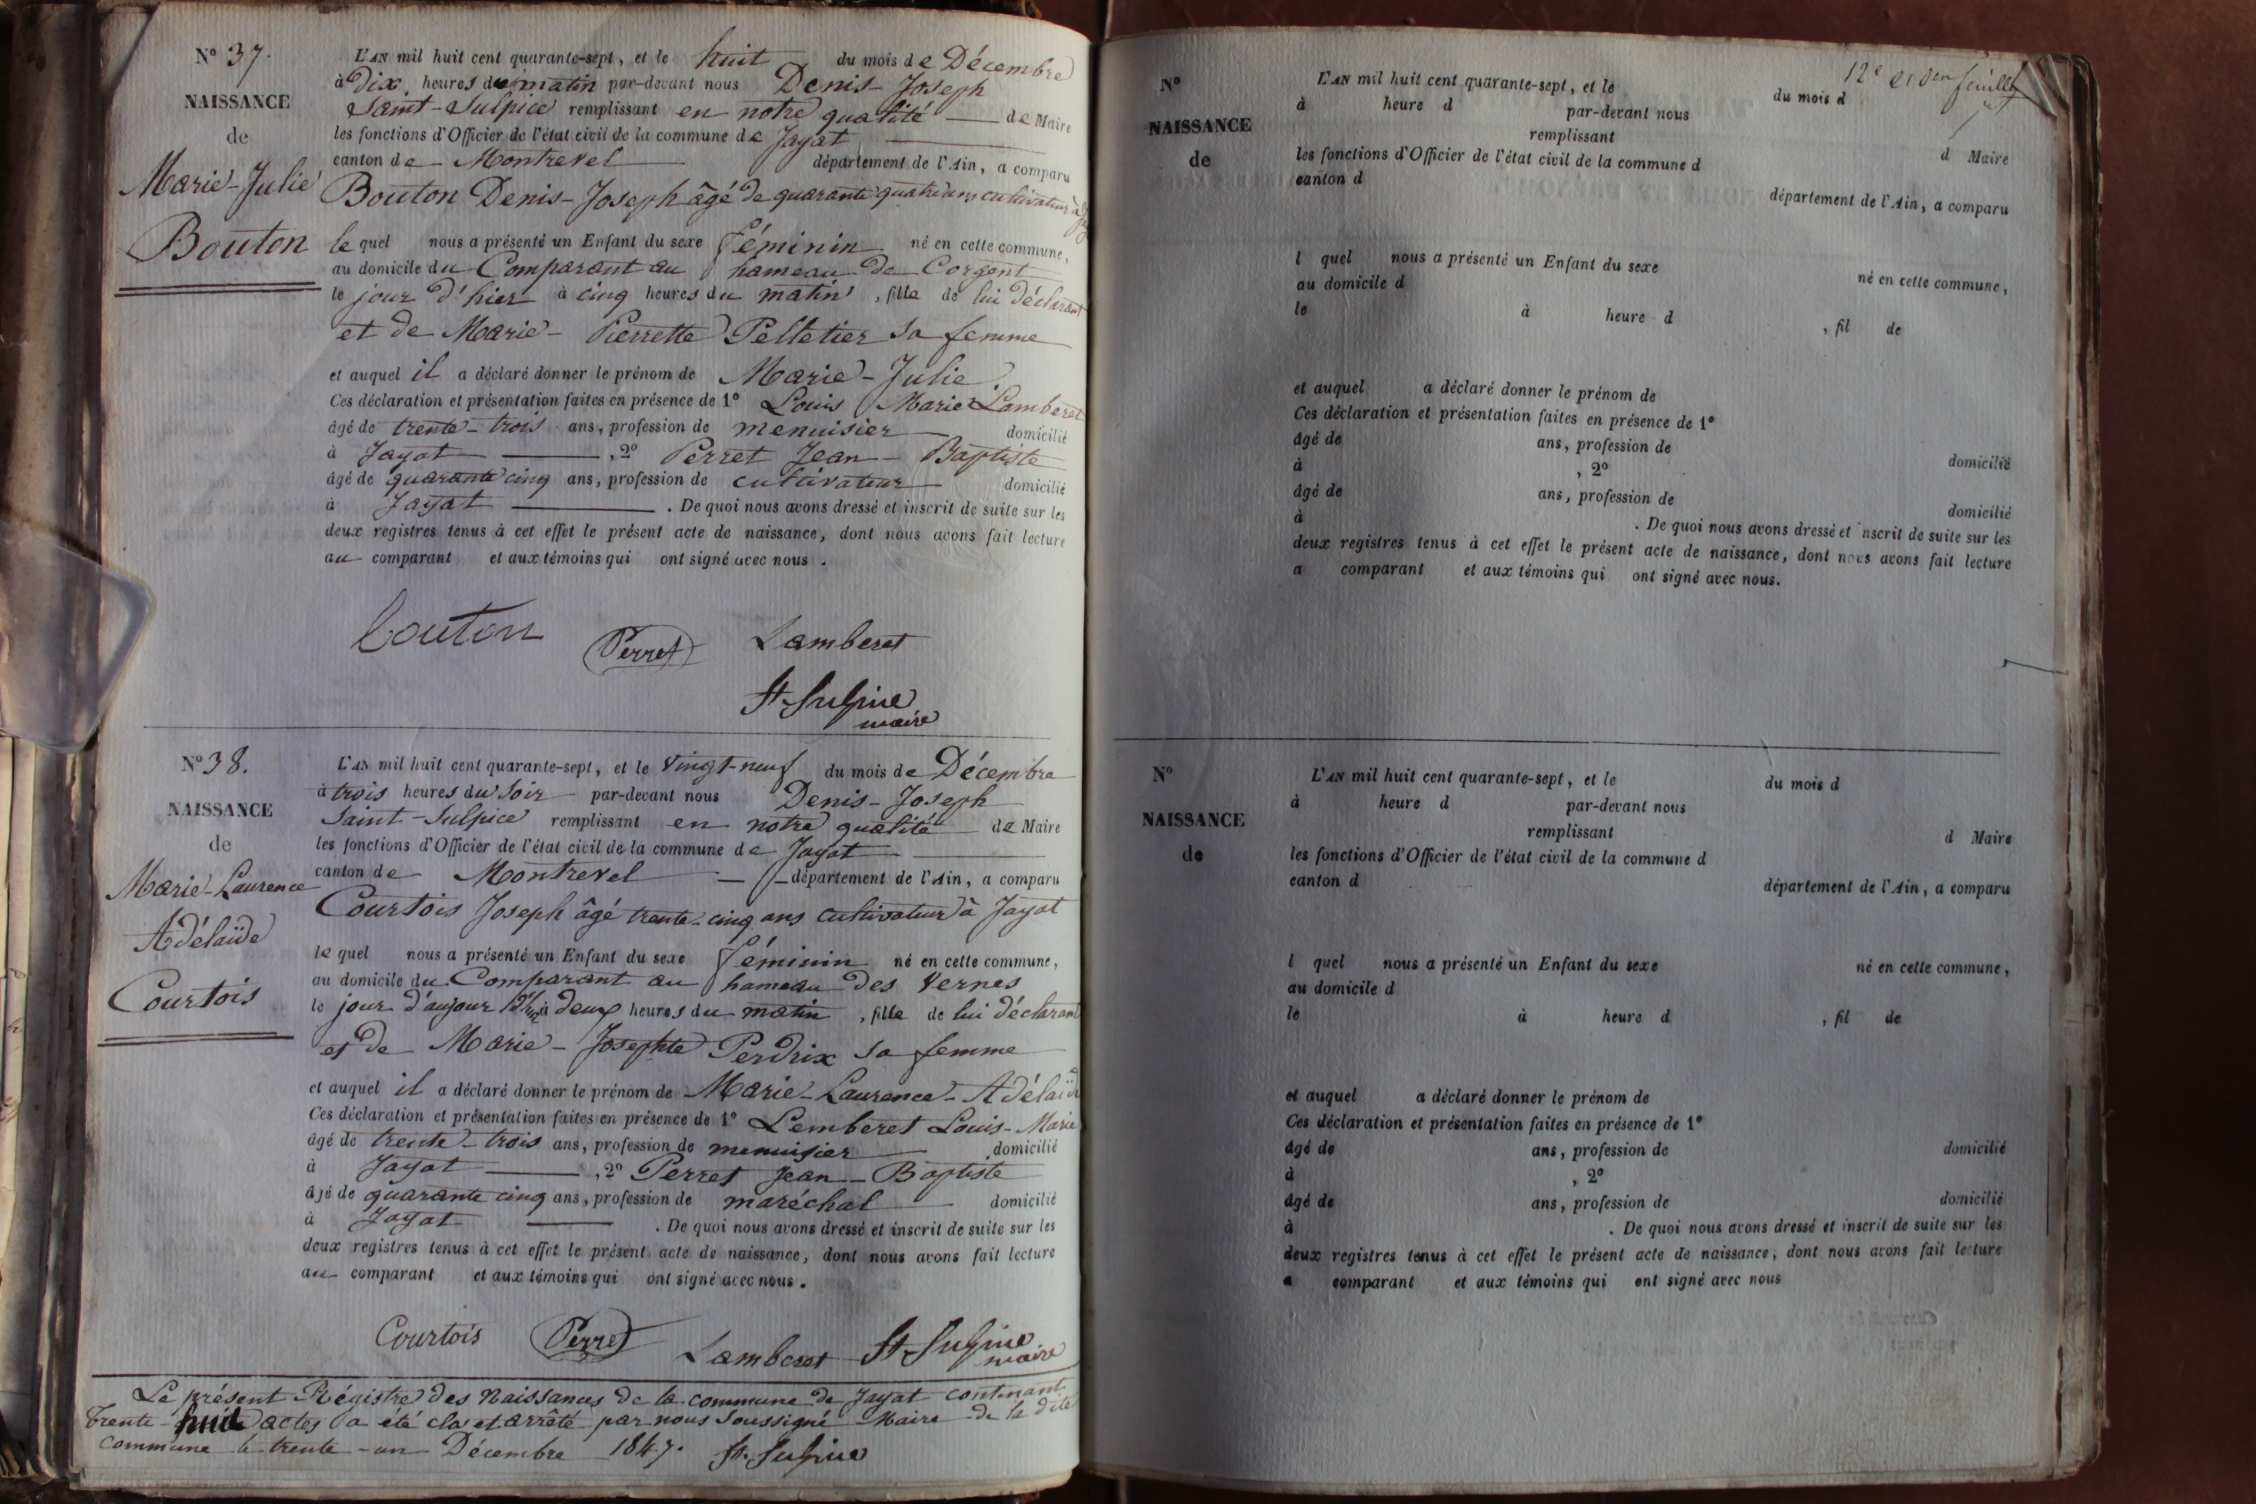 N° 37.
NAISSANCE
de
Marie-Julie
Bouton
L'AN mil huit cent quarante-sept, et le huit du mois de Décembre
à Dix heures du matin par-devant nous Denis-Joseph
Saint-Sulpice remplissant en notre qualité de Maire
les fonctions d'Officier de l'état civil de la commune de Jayat
canton de Montrevel département de l'Ain, a comparu
Bouton Denis-Joseph âgé de quarante quatre ans cultivateur à
le quel nous a présenté un Enfant du sexe féminin né en cette commune,
au domicile du Comparant au hameau de Corgent
le jour d'hier à cinq heures du matin, fille de lui déclarant
et de Marie-Pierrette Pelletier sa femme
et auquel il a déclaré donner le prénom de Marie-Julie.
Ces déclaration et présentation faites en présence de 1° Louis Marie Lamberet
âgé de trente-trois ans, profession de menuisier domicilié
à Jayat, 2° Perret Jean-Baptiste
âgé de quarante cinq ans, profession de cultivateur domicilié
à Jayat. De quoi nous avons dressé et inscrit de suite sur les
deux registres tenus à cet effet le présent acte de naissance, dont nous avons fait lecture
au comparant et aux témoins qui ont signé avec nous.
bouton Perret Lamberet
St-Sulpice
maire
N° 38.
NAISSANCE
de
Marie-Laurence
Adélaïde
Courtois
L'AN mil huit cent quarante-sept, et le vingt-neuf du mois de Décembre
à trois heures du soir par-devant nous Denis-Joseph
Saint-Sulpice remplissant en notre qualité de Maire
les fonctions d'Officier de l'état civil de la commune de Jayat
canton de Montrevel département de l'Ain, a comparu
Courtois Joseph âgé trente-cinq ans cultivateur à Jayat
le quel nous a présenté un Enfant du sexe féminin né en cette commune,
au domicile du Comparant au hameau des Vernes
le jour d'aujour d'hui à deux heures du matin, fille de lui déclarant
et de Marie-Josephte Perdrix sa femme
et auquel il a déclaré donner le prénom de Marie-Laurence-Adélaïde
Ces déclaration et présentation faites en présence de 1° Lemberet Louis-Marie
âgé de trente-trois ans, profession de menuisier domicilié
à Jayat, 2° Perret Jean-Baptiste
âgé de quarante cinq ans, profession de maréchal domicilié
à Jayat. De quoi nous avons dressé et inscrit de suite sur les
deux registres tenus à cet effet le présent acte de naissance, dont nous avons fait lecture
au comparant et aux témoins qui ont signé avec nous.
Courtois Perret Lamberet St-Sulpice
maire
Le présent Régistre des Naissances de la commune de Jayat contenant
trente-huit actes a été clos et arrêté par nous soussigné Maire de la dite
commune le trente-un Décembre 1847. St-Sulpice
12e et der feuillet
N°
NAISSANCE
de
L'AN mil huit cent quarante-sept, et le du mois d
à heure d par-devant nous
remplissant d Maire
les fonctions d'Officier de l'état civil de la commune d
canton d département de l'Ain, a comparu
l quel nous a présenté un Enfant du sexe né en cette commune,
au domicile d
le à heure d , fil de
et auquel a déclaré donner le prénom de
Ces déclaration et présentation faites en présence de 1°
âgé de ans, profession de domicilié
à , 2°
âgé de ans, profession de domicilié
à . De quoi nous avons dressé et inscrit de suite sur les
deux registres tenus à cet effet le présent acte de naissance, dont nous avons fait lecture
a comparant et aux témoins qui ont signé avec nous.
N°
NAISSANCE
de
L'AN mil huit cent quarante-sept, et le du mois d
à heure d par-devant nous
remplissant d Maire
les fonctions d'Officier de l'état civil de la commune d
canton d département de l'Ain, a comparu
l quel nous a présenté un Enfant du sexe né en cette commune,
au domicile d
le à heure d , fil de
et auquel a déclaré donner le prénom de
Ces déclaration et présentation faites en présence de 1°
âgé de ans, profession de domicilié
à , 2°
âgé de ans, profession de domicilié
à . De quoi nous avons dressé et inscrit de suite sur les
deux registres tenus à cet effet le présent acte de naissance, dont nous avons fait lecture
a comparant et aux témoins qui ont signé avec nous